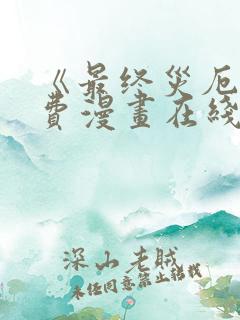 《最终灾厄
费漫畫在綫
深山老贼
未经同意禁止转载